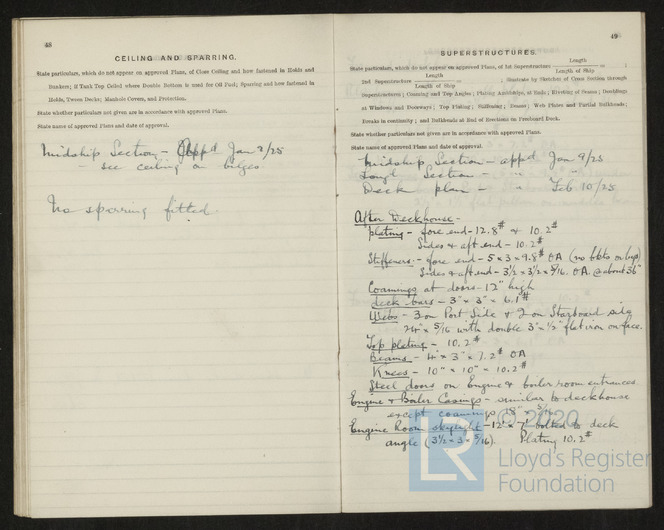 48
CEILING AND SPARRING.
State particulars, which do not appear on approved Plans, of Close Ceiling and how fastened in Holds and
Bunkers; if Tank Top Ceiled where Double Bottom is used for Oil Fuel; Sparring and how fastened in
Holds, Tween Decks; Manhole Covers, and Protection.
State whether particulars not given are in accordance with approved Plans.
State name of approved Plans and date of approval.
Midship Section - appd Jan 9/25
- see ceiling on bilges
No sparring fitted.
49
SUPERSTRUCTURES.
State particulars, which do not appear on approved Plans, of 1st Superstructure Length / Length of Ship = ;
2nd Superstructure Length / Length of Ship = ; illustrate by Sketches of Cross Section through
Superstructures; Coaming and Top Angles; Plating Amidships, at Ends; Riveting of Seams; Deadlights
at Windows and Doorways; Top Plating; Stiffening; Beams; Web Plates and Partial Bulkheads;
Breaks in continuity; and Bulkheads at End of Erections on Freeboard Deck.
State whether particulars not given are in accordance with approved Plans.
State name of approved Plans and date of approval.
Midship Section - appd Jan 9/25
Longl Section - " "
Deck plan - " Feb 10/25
After Deckhouse -
plating - fore end - 12.8# & 10.2#
Sides & aft end - 10.2#
Stiffeners - fore end - 5 x 3 x 9.8# OA (no bkts or lugs)
Sides & aft end - 3½ x 3½ x 5/16. OA. @ about 36"
Coamings at doors - 12" high
deck bars - 3" x 3" x 6.1#
Webs - 3 on Port Side & 2 on Starboard side
24" x 5/16 with double 3" x ½" flat iron on face.
Top plating - 10.2#
Beams - 4" x 3" x 7.2# OA
Knees - 10" x 10" x 10.2#
Steel doors on Engine & boiler room entrances
Engine & Boiler Casings - similar to deckhouse
except coamings 18" 5/16
Engine Room skylight - 12' x 7' bolted to deck
angle (3½ x 3 x 5/16). Plating 10.2#
© 2020
LR
Lloyd's Register
Foundation